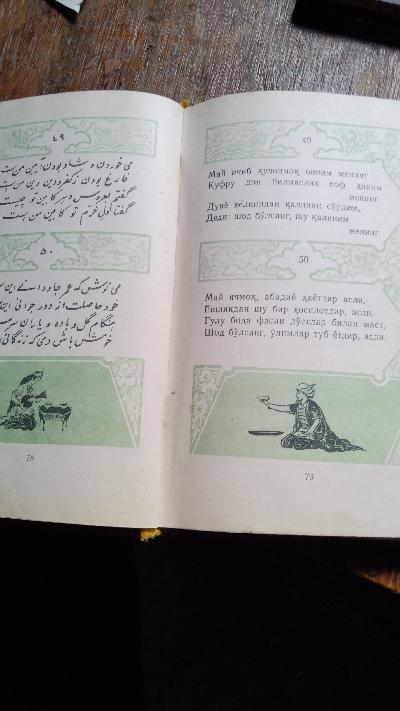 ۴۹
می خوردن و شاد بودن آیین من است
فارغ بودن ز کفر و دین دین من است
گفتم بعروس دهر کابین تو چیست
گفتا دل خرم تو کابین من است
۵۰
می نوش که عمر جاودانی این
خود حاصلت از دور جوانی این
هنگام گل و باده و یاران سرمست
خوش باش دمی که زندگانی
78
49
Май ичиб қувонмоқ оиним менинг
Куфру дин билмаслик соф диним
менинг.
Дунё келкиндан қалинин сўрдим,
Деди: шод бўлсанг, шу қалиним
менинг.
50
Май ичмоқ, абадий ҳаётдир асли,
Ёшликдан шу бир ҳосилотдир, асли.
Гулу бода фасли дўстлар билан маст,
Шод бўлсанг, ўлимлар туб ётдир, асли.
79